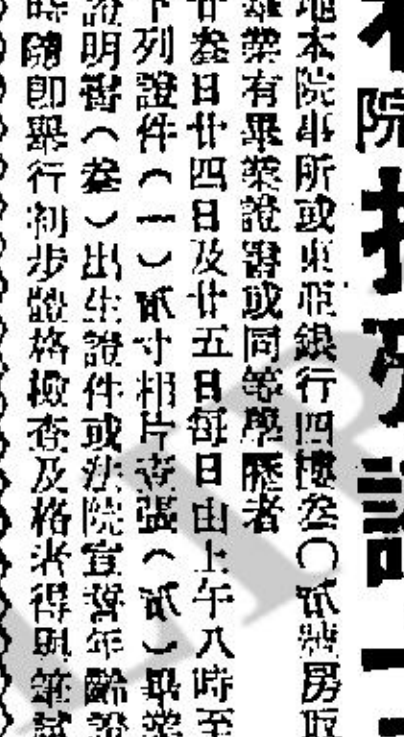 院招
地本院事所或東亞銀行四樓叁〇貳號房取
業有畢業證書或同等學歷者
廿叁日廿四日及廿五日每日由上午八時至
下列證件(一)貳寸相片壹張(貳)畢業
證明書(叁)出生證件或法院宣誓年齡證
時隨即舉行初步體格檢查及格者得與筆試